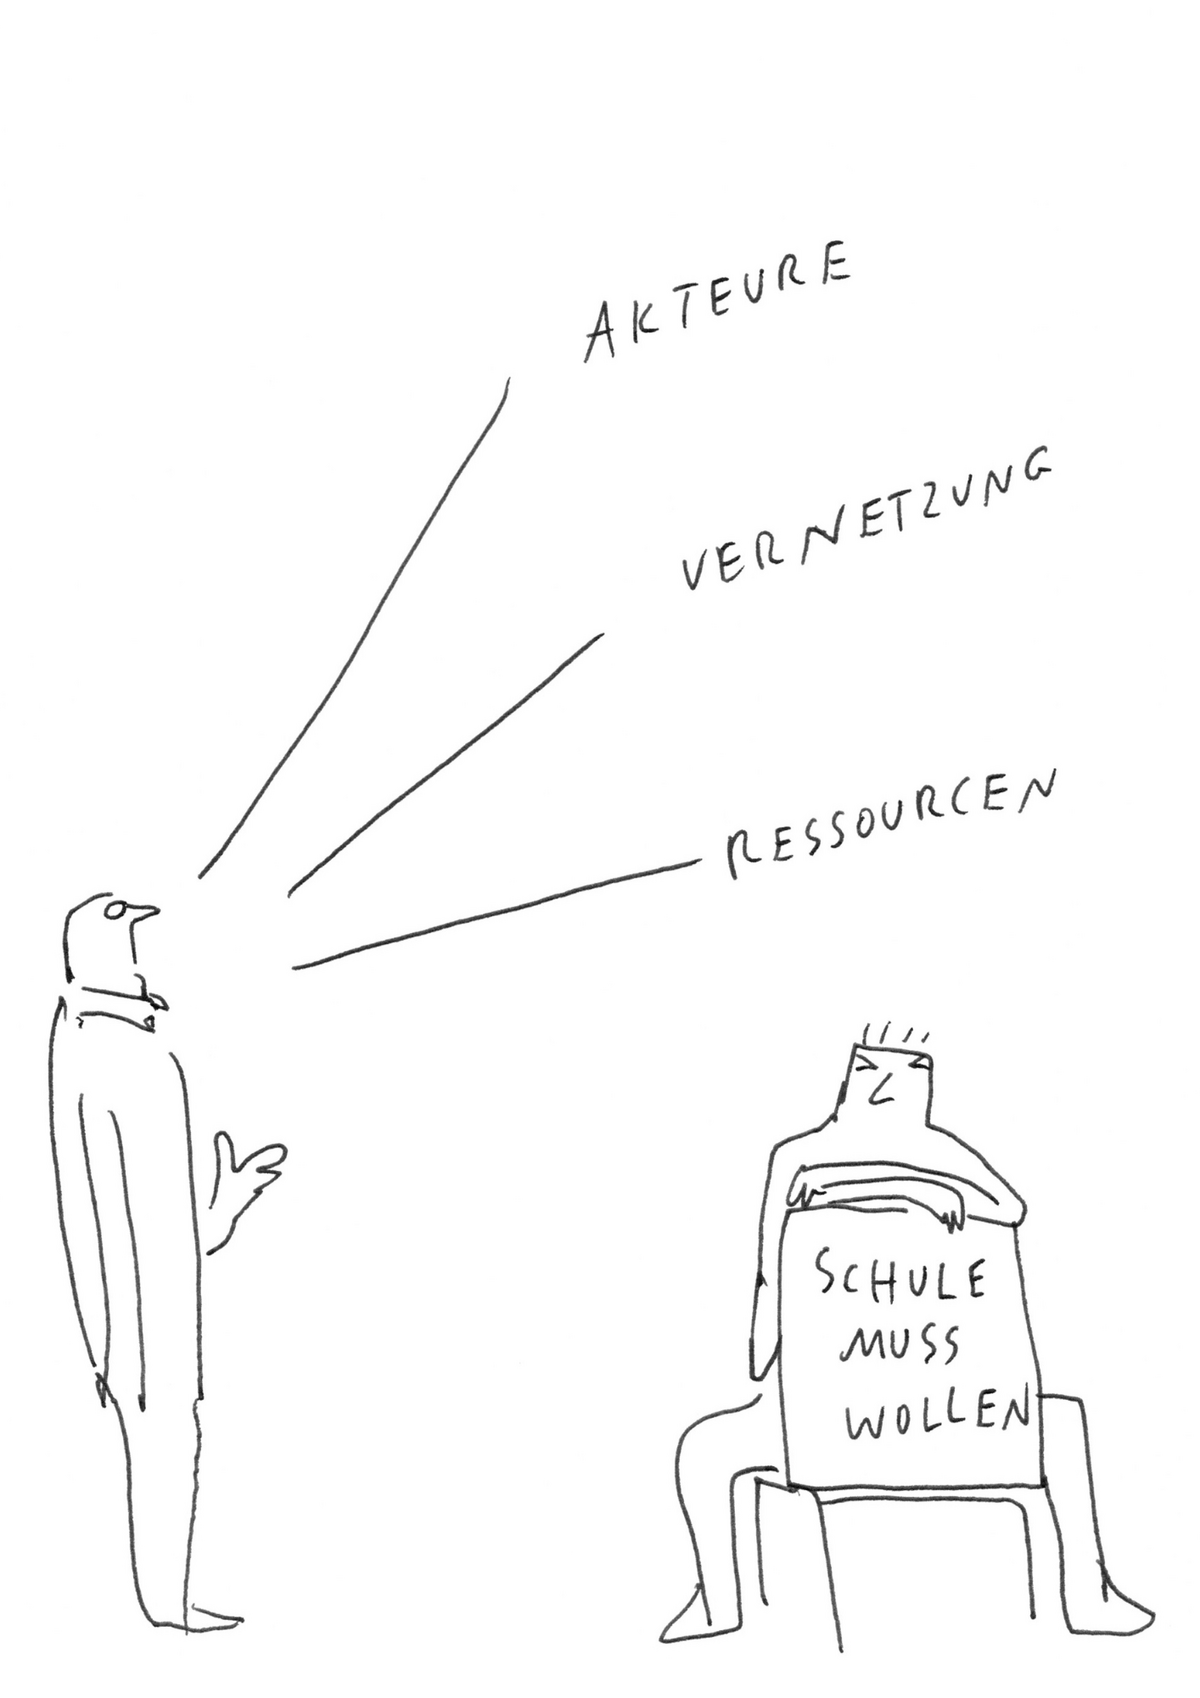 AKTEURE
VERNETZUNG
RESSOURCEN
SCHULE
MUSS
WOLLEN